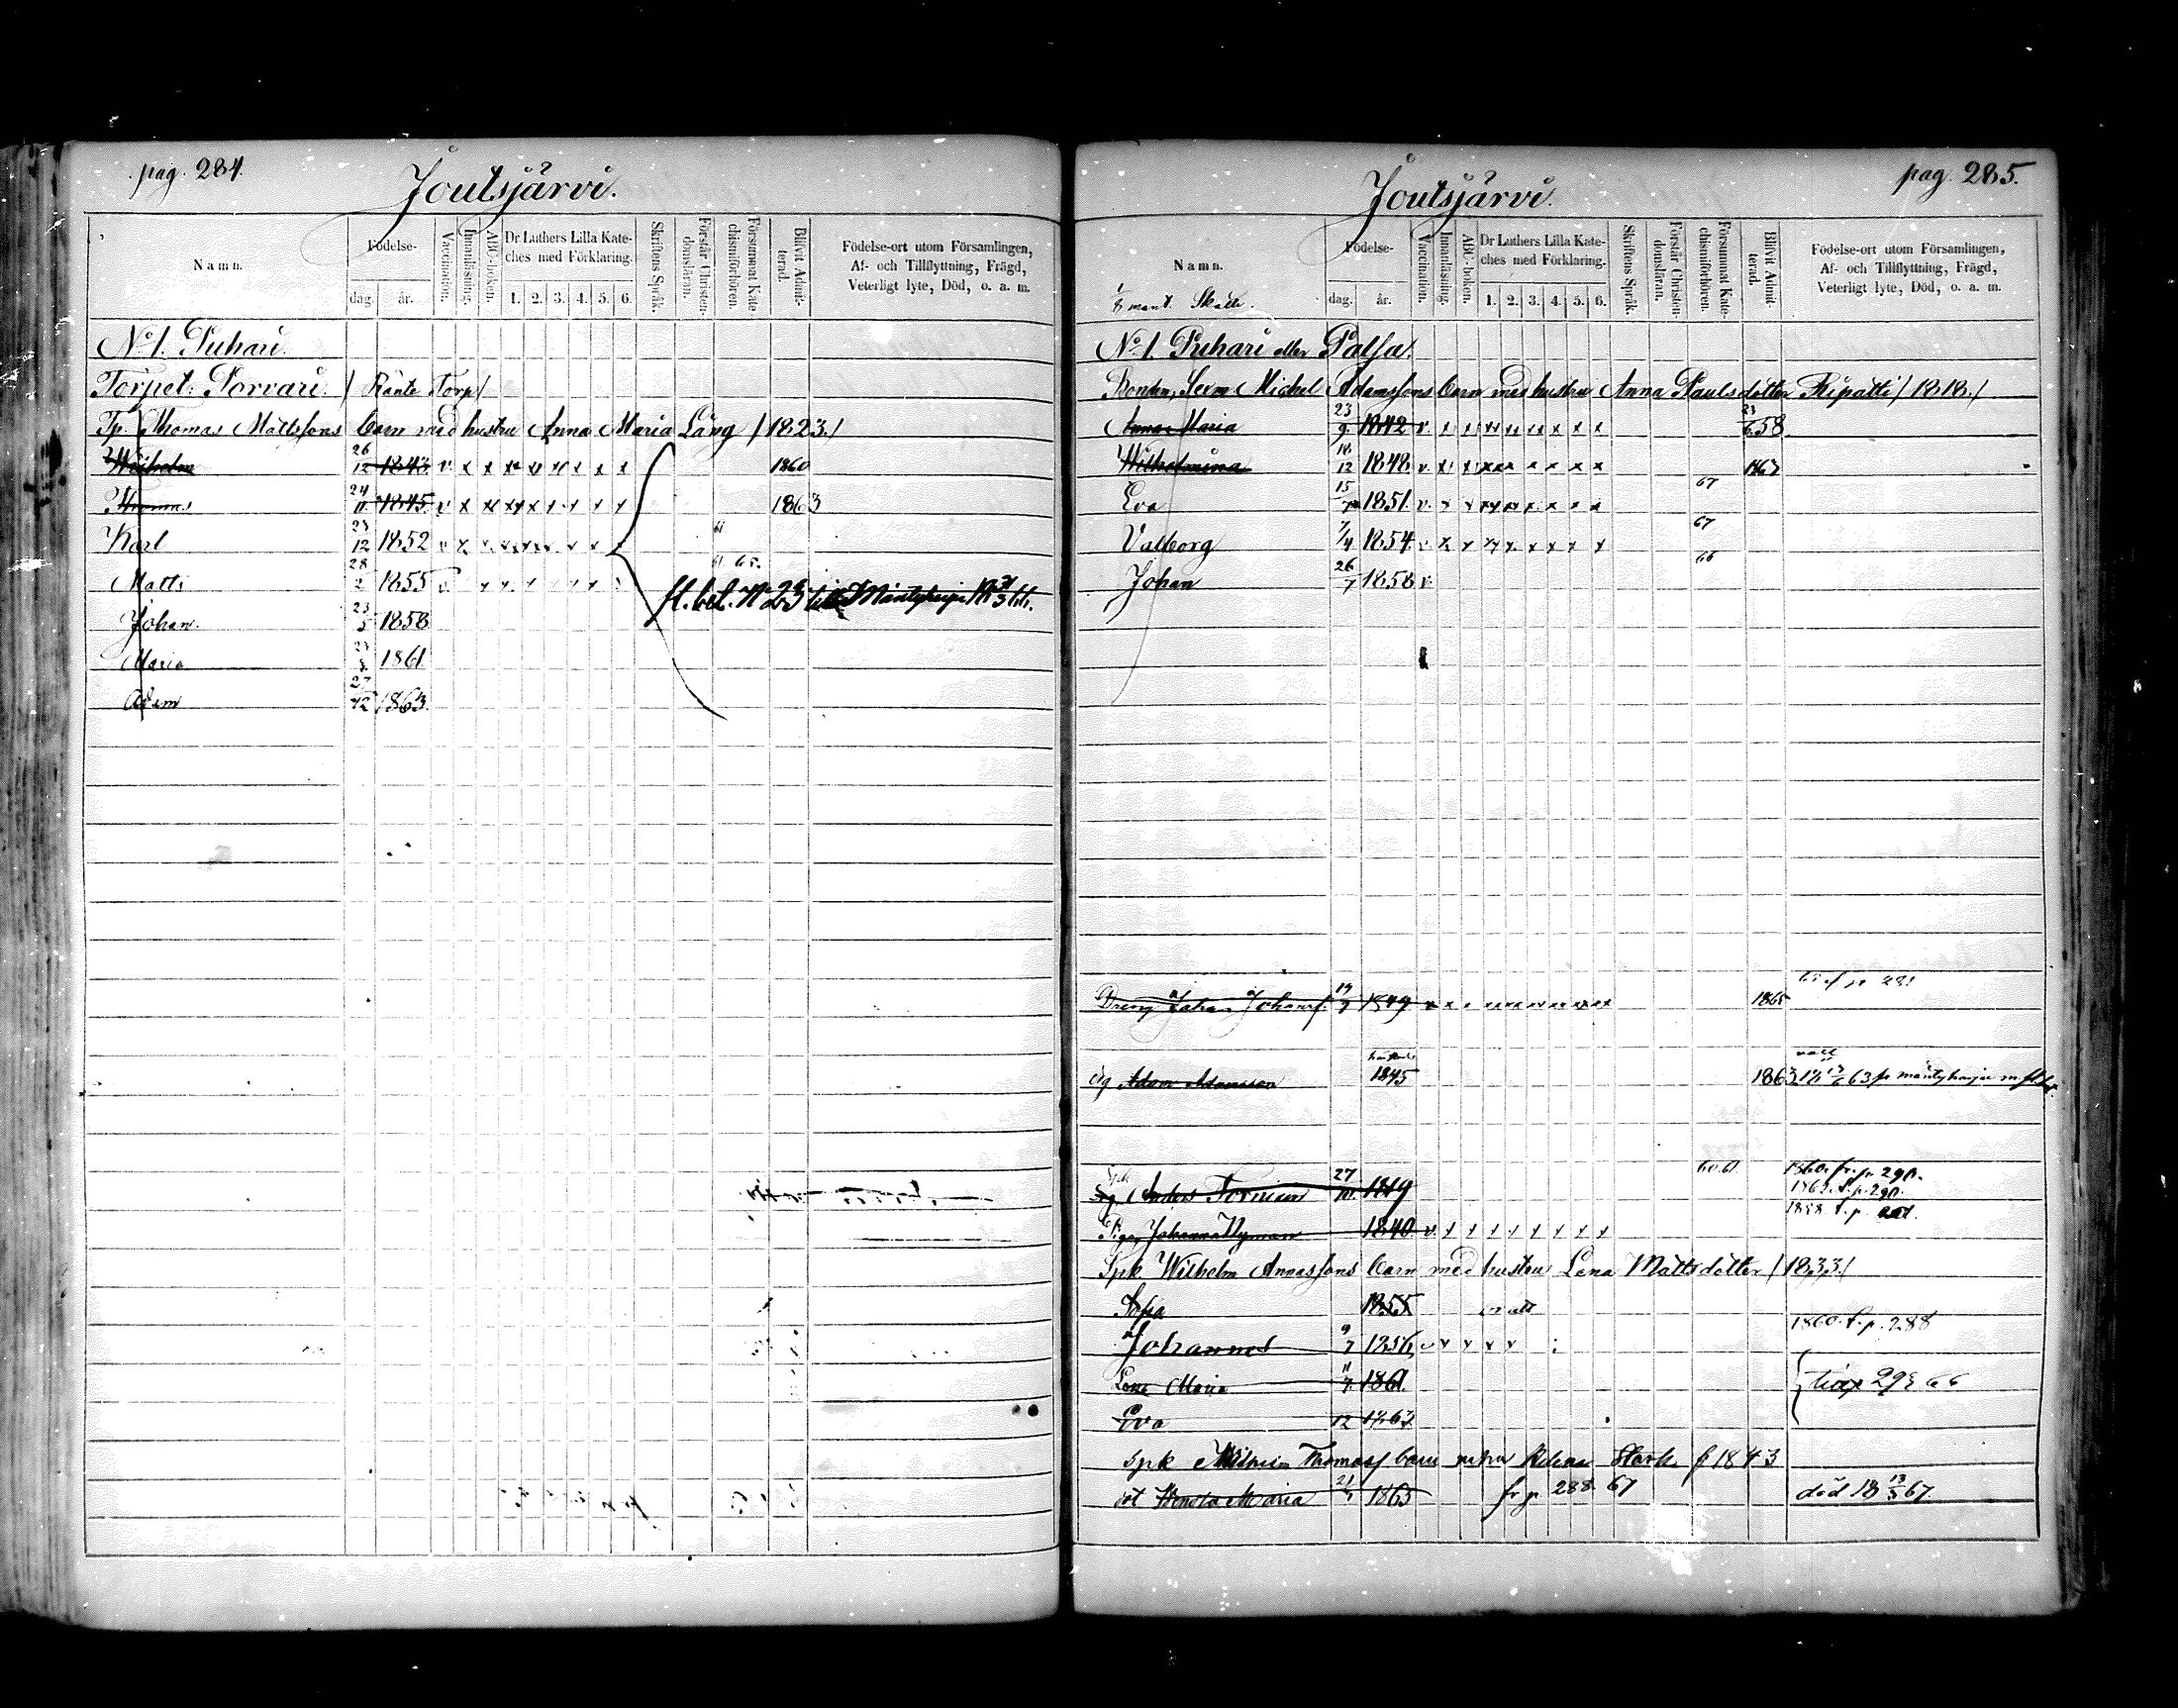 pag. 284.
Joutsjärvi.
Namn.
Födelse-
dag.
år.
Vaccination.
Innanläsning.
ABC-boken.
Dr Luthers Lilla Kate-
ches med Förklaring.
1. 2. 3. 4. 5. 6.
Skriftens Språk.
Förstår Christen-
domsläran.
Försummat Kate-
chismiförhören.
Blifvit Admit-
terad.
Födelse-ort utom Församlingen,
Af- och Tillflyttning, Frägd,
Veterligt lyte, Död, o. a. m.
No 1. Puhari.
Torpet: Porvari. / Ränte Torp /
Tp. Thomas Mattssons barn med hustru Anna Maria Läng / 1823. /
Wilhelm 26/12 1843 v x x x x x x x x 1860
Thomas 24/11 1845 v x x x x x x x x 1863
Karl 23/12 1852 v x 61
Matts 28/2 1855 v 61 65.
fl. bet. No 23 till Mäntyharju
Johan. 23/5 1858
Maria 1861
Adam 27/12 1863.
pag. 285.
Joutsjärvi.
Namn.
1/8 mant. Skatt.
Födelse-
dag.
år.
Vaccination.
Innanläsning.
ABC-boken.
Dr Luthers Lilla Kate-
ches med Förklaring.
1. 2. 3. 4. 5. 6.
Skriftens Språk.
Förstår Christen-
domsläran.
Försummat Kate-
chismiförhören.
Blifvit Admit-
terad.
Födelse-ort utom Församlingen,
Af- och Tillflyttning, Frägd,
Veterligt lyte, Död, o. a. m.
No 1. Puhari eller Palsa.
Bonden, Michel Adamssons barn med hustru Anna Paulsdotter Ripatti / 1818. /
Anna Maria 23/9 1842 v x x x x x x x x 58
Wilhelmina 18/12 1848 v x x x x x x x x 1867
Eva 15/7 1851. v x x x x x x x x 67
Valborg 7/4 1854. v x x x x x x x x 67
Johan 26/7 1858 v 66
Dreng Johan Johansf. 19/9 1849 1865
Dg Adam Adamsson 1845 1863 63 fr mäntyharju
Spk Anders Tornian 27/10 1819 60.61. 1860. fr. p. 290.
1862. t. p. 290.
Pig. Johanna Nyman 1840 v x x x x x x x x 1858. t. p.
Spk. Wilhelm Annassons barn med hustru Lena Mattsdotter / 1833. /
Sofia 1855
Johannes 9/7 1856 v x x x x 1860. t. p. 288
Lena Maria 11/7 1861.
Eva 12 1863
Spk Wilhelm Thomasf barn Helena Stark f 1843
Maria 1865 fr p 288 67 död 18 13/5 67.